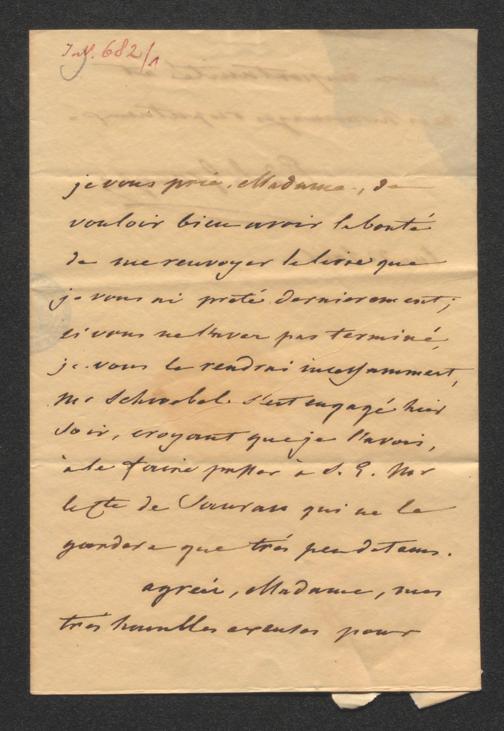 J.N. 682/1
je vous prie, Madame, de
vouloir bien avoir la bonté
de me renvoyer le livre que
je vous ai preté dernierement;
si vous ne l'avez pas terminé,
je vous le rendrai incessamment,
mr Schwebel s'est engagé hier
soir, croyant que je l'avois,
à le faire passer à S. E. Mr
le Cte de Saurau qui ne le
gardera que très peu de tems.
agréez, Madame, mes
très humbles excuses pour